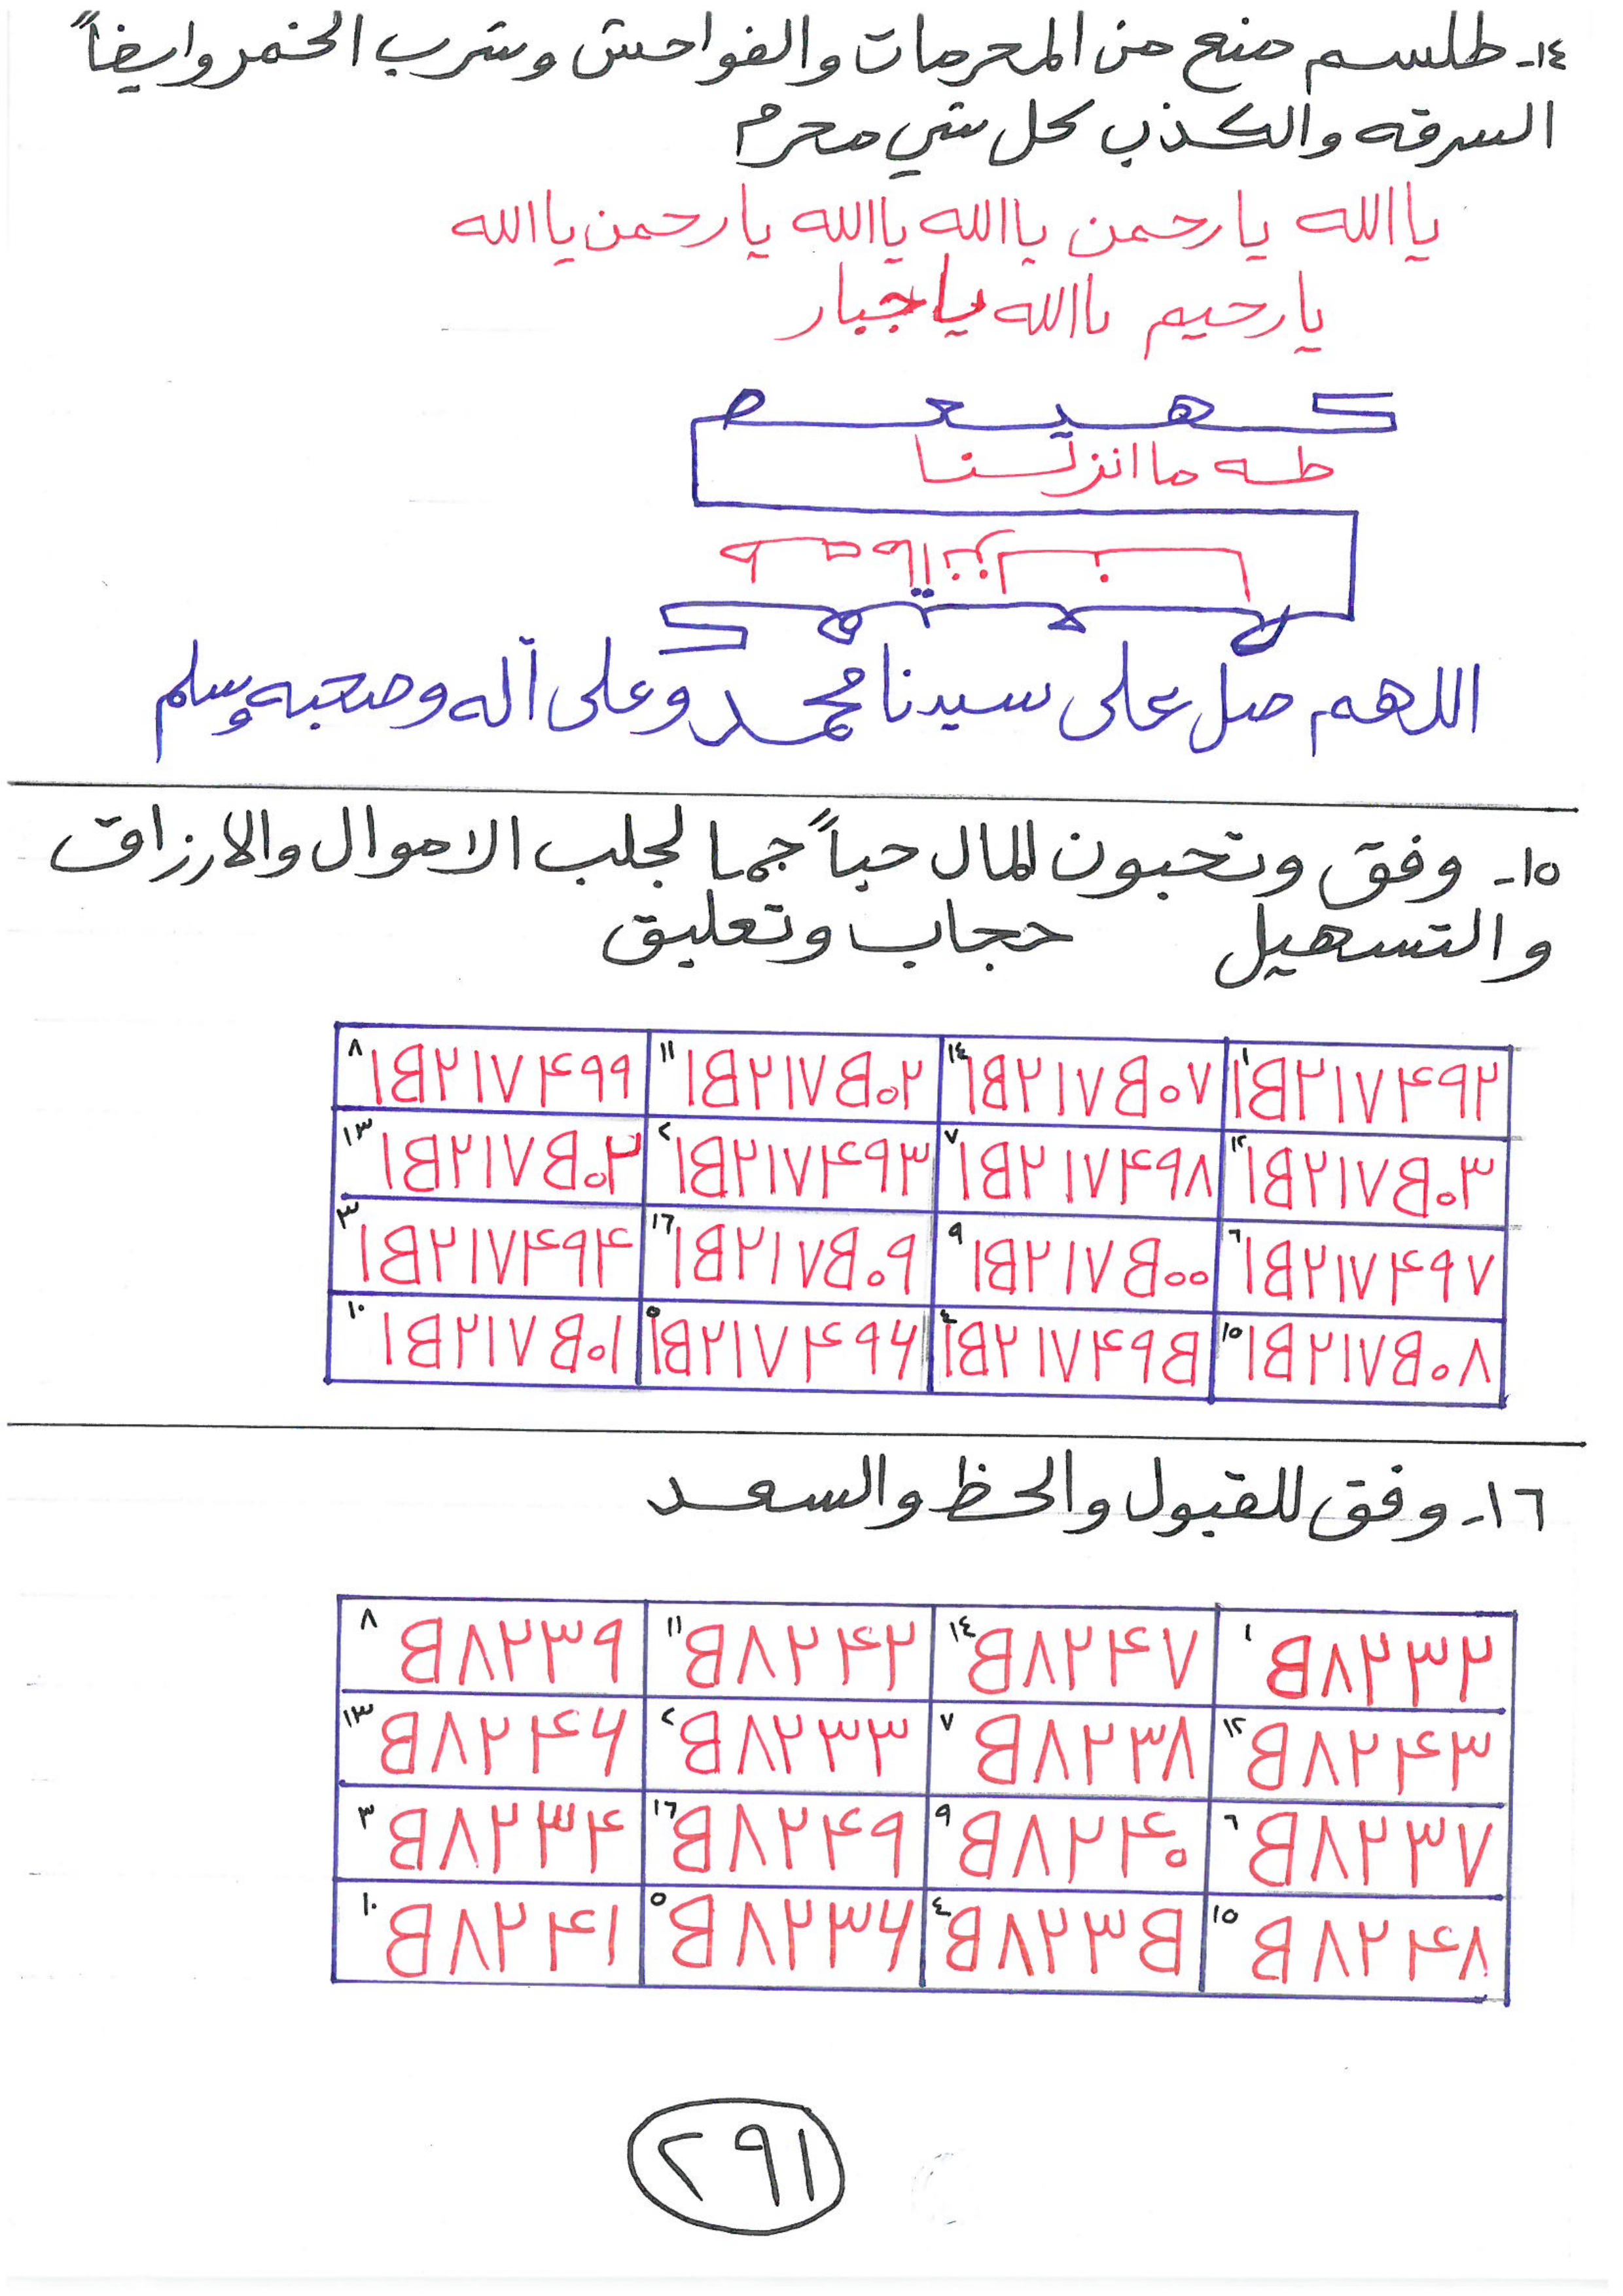 ١٤- طلسم منع من المحرمات والفواحش وشرب الخمر وايضاً
السرقه والكذب كل شي محرم
يا الله يا رحمن يا الله يا الله يا رحمن يا الله
يا رحيم يا الله يا جبار
كهيعص
طه ما انزلنا
طه ما انزلنا
كهيعص
اللهم صل على سيدنا محمد وعلى آله وصحبه وسلم
١٥- وفق وتحبون المال حباً جما لجلب الاموال والارزاق
والتسهيل حجاب وتعليق
١ ١B٢١٧۴٩٢ ١٤ ١B٢١٧B٠٧ ١١ ١B٢١٧B٠٢ ٨ ١B٢١٧۴٩٩
١٢ ١B٢١٧B٠٣ ٧ ١B٢١٧۴٩٨ ٢ ١B٢١٧۴٩٣ ١٣
٦ ١B٢١٧۴٩٧ ٩ ١B٢١٧B٠٠ ١٦ ١B٢١٧B٠٩ ٣ ١B٢١٧۴٩۴
١٥ ١B٢١٧B٠٨ ٤ ١B٢١٧۴٩B ٥ ١B٢١٧۴٩۶ ١٠ ١B٢١٧B٠١
١٦- وفق للقبول والحظ والسعد
١ B٨٢٣٢ ١٤ B٨٢۴٧ ١١ B٨٢۴٢ ٨ B٨٢٣٩
١٢ B٨٢۴٣ ٧ B٨٢٣٨ ٢ B٨٢٣٣ ١٣ B٨٢۴۶
٦ B٨٢٣٧ ٩ B٨٢۴٠ ١٦ B٨٢۴٩ ٣ B٨٢٣۴
١٥ B٨٢۴٨ ٤ B٨٢٣B ٥ B٨٢٣۶ ١٠ B٨٢۴١
٢٩١